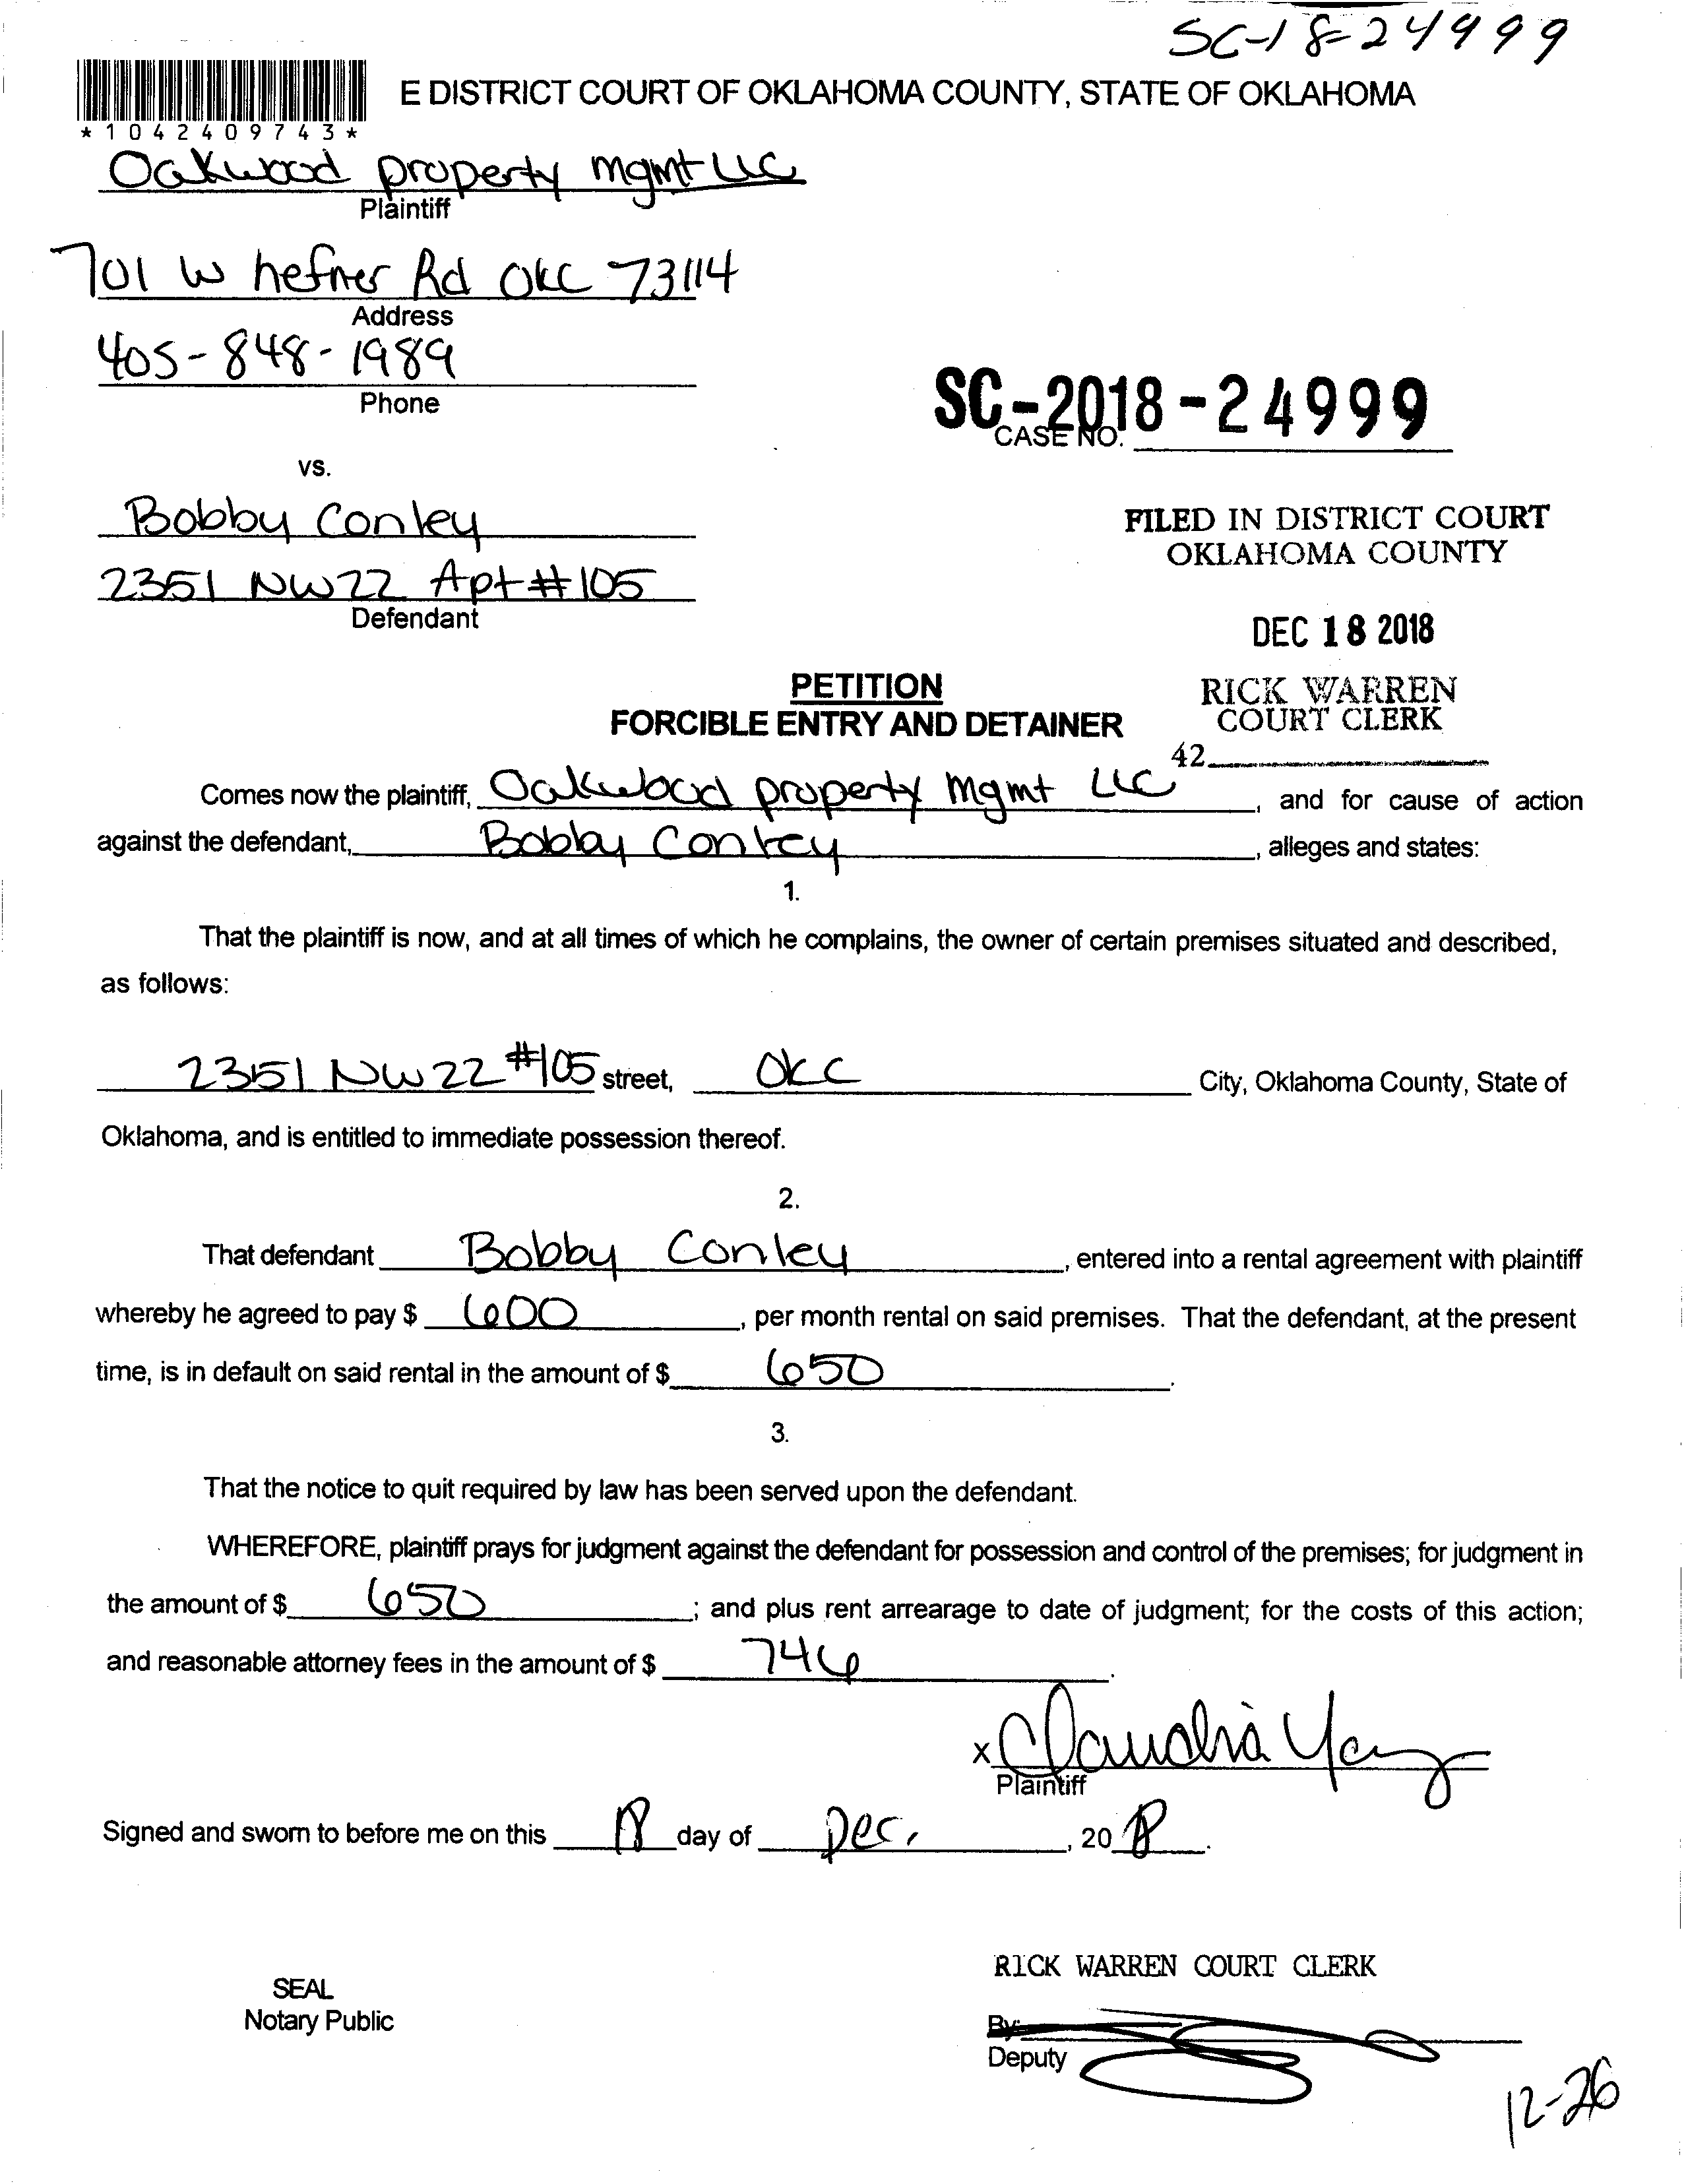 SC-18-24999
E DISTRICT COURT OF OKLAHOMA COUNTY, STATE OF OKLAHOMA
*1042409743*
Oakwood property mgmt LLC
Plaintiff
701 W hefner Rd OKC 73114
Address
405-848-1989
Phone
SC-2018-24999
CASE NO.
vs.
Bobby Conley
2351 NW22 Apt #105
Defendant
FILED IN DISTRICT COURT
OKLAHOMA COUNTY
DEC 18 2018
RICK WARREN
COURT CLERK
42
PETITION
FORCIBLE ENTRY AND DETAINER
Comes now the plaintiff, Oakwood property mgmt LLC, and for cause of action
against the defendant, Bobby Conley, alleges and states:
1.
That the plaintiff is now, and at all times of which he complains, the owner of certain premises situated and described,
as follows:
2351 NW22 #105 street, OKC City, Oklahoma County, State of
Oklahoma, and is entitled to immediate possession thereof.
2.
That defendant Bobby Conley, entered into a rental agreement with plaintiff
whereby he agreed to pay $ 600, per month rental on said premises. That the defendant, at the present
time, is in default on said rental in the amount of $ 650.
3.
That the notice to quit required by law has been served upon the defendant.
WHEREFORE, plaintiff prays for judgment against the defendant for possession and control of the premises; for judgment in
the amount of $ 650; and plus rent arrearage to date of judgment; for the costs of this action;
and reasonable attorney fees in the amount of $ 746.
x Claudia
Plaintiff
Signed and sworn to before me on this 18 day of Dec., 2018.
SEAL
Notary Public
RICK WARREN COURT CLERK
By:
Deputy
12-26